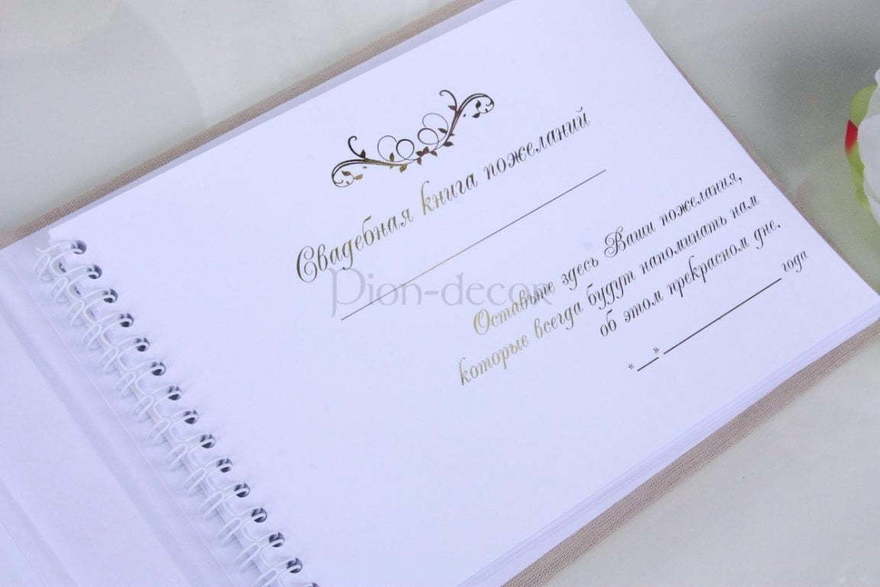 Свадебная книга пожеланий
Pion-decor
Оставьте здесь Ваши пожелания,
которые всегда будут напоминать нам
об этом прекрасном дне.
"__"__________года